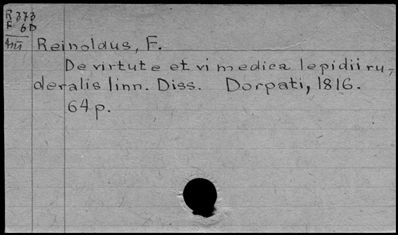 R 373
F 6D
Reinoldus, F.
De virtute et vi medica lepidii ru-
deralis linn. Diss. Dorpati, 1816.
64 p.